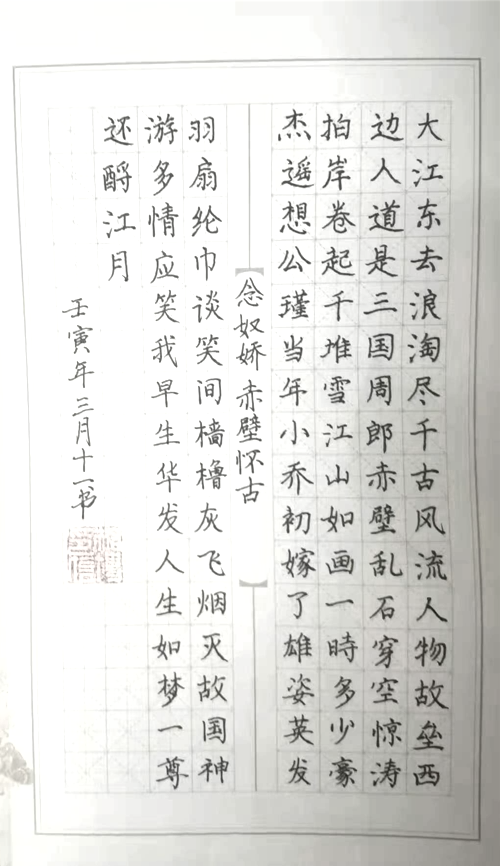 大江东去浪淘尽千古风流人物故垒西
边人道是三国周郎赤壁乱石穿空惊涛
拍岸卷起千堆雪江山如画一時多少豪
杰遥想公瑾当年小乔初嫁了雄姿英发
念奴娇赤壁怀古
羽扇纶巾谈笑间樯橹灰飞烟灭故国神
游多情应笑我早生华发人生如梦一尊
还酹江月
壬寅年三月十一书